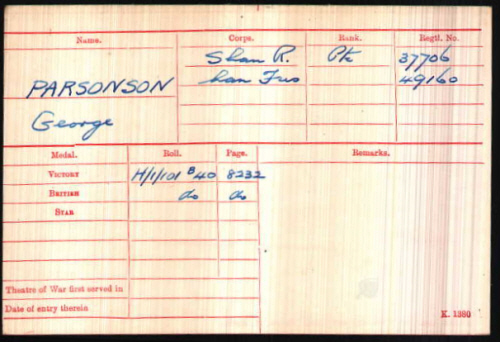 Name. Corps. Rank. Regtl. No.
PARSONSON Shan R. Pte 37706
George Lan Fus 49160
Medal. Roll. Page. Remarks.
VICTORY H/1/101 B40 8232
BRITISH do do
STAR
Theatre of War first served in
Date of entry therein
K. 1380